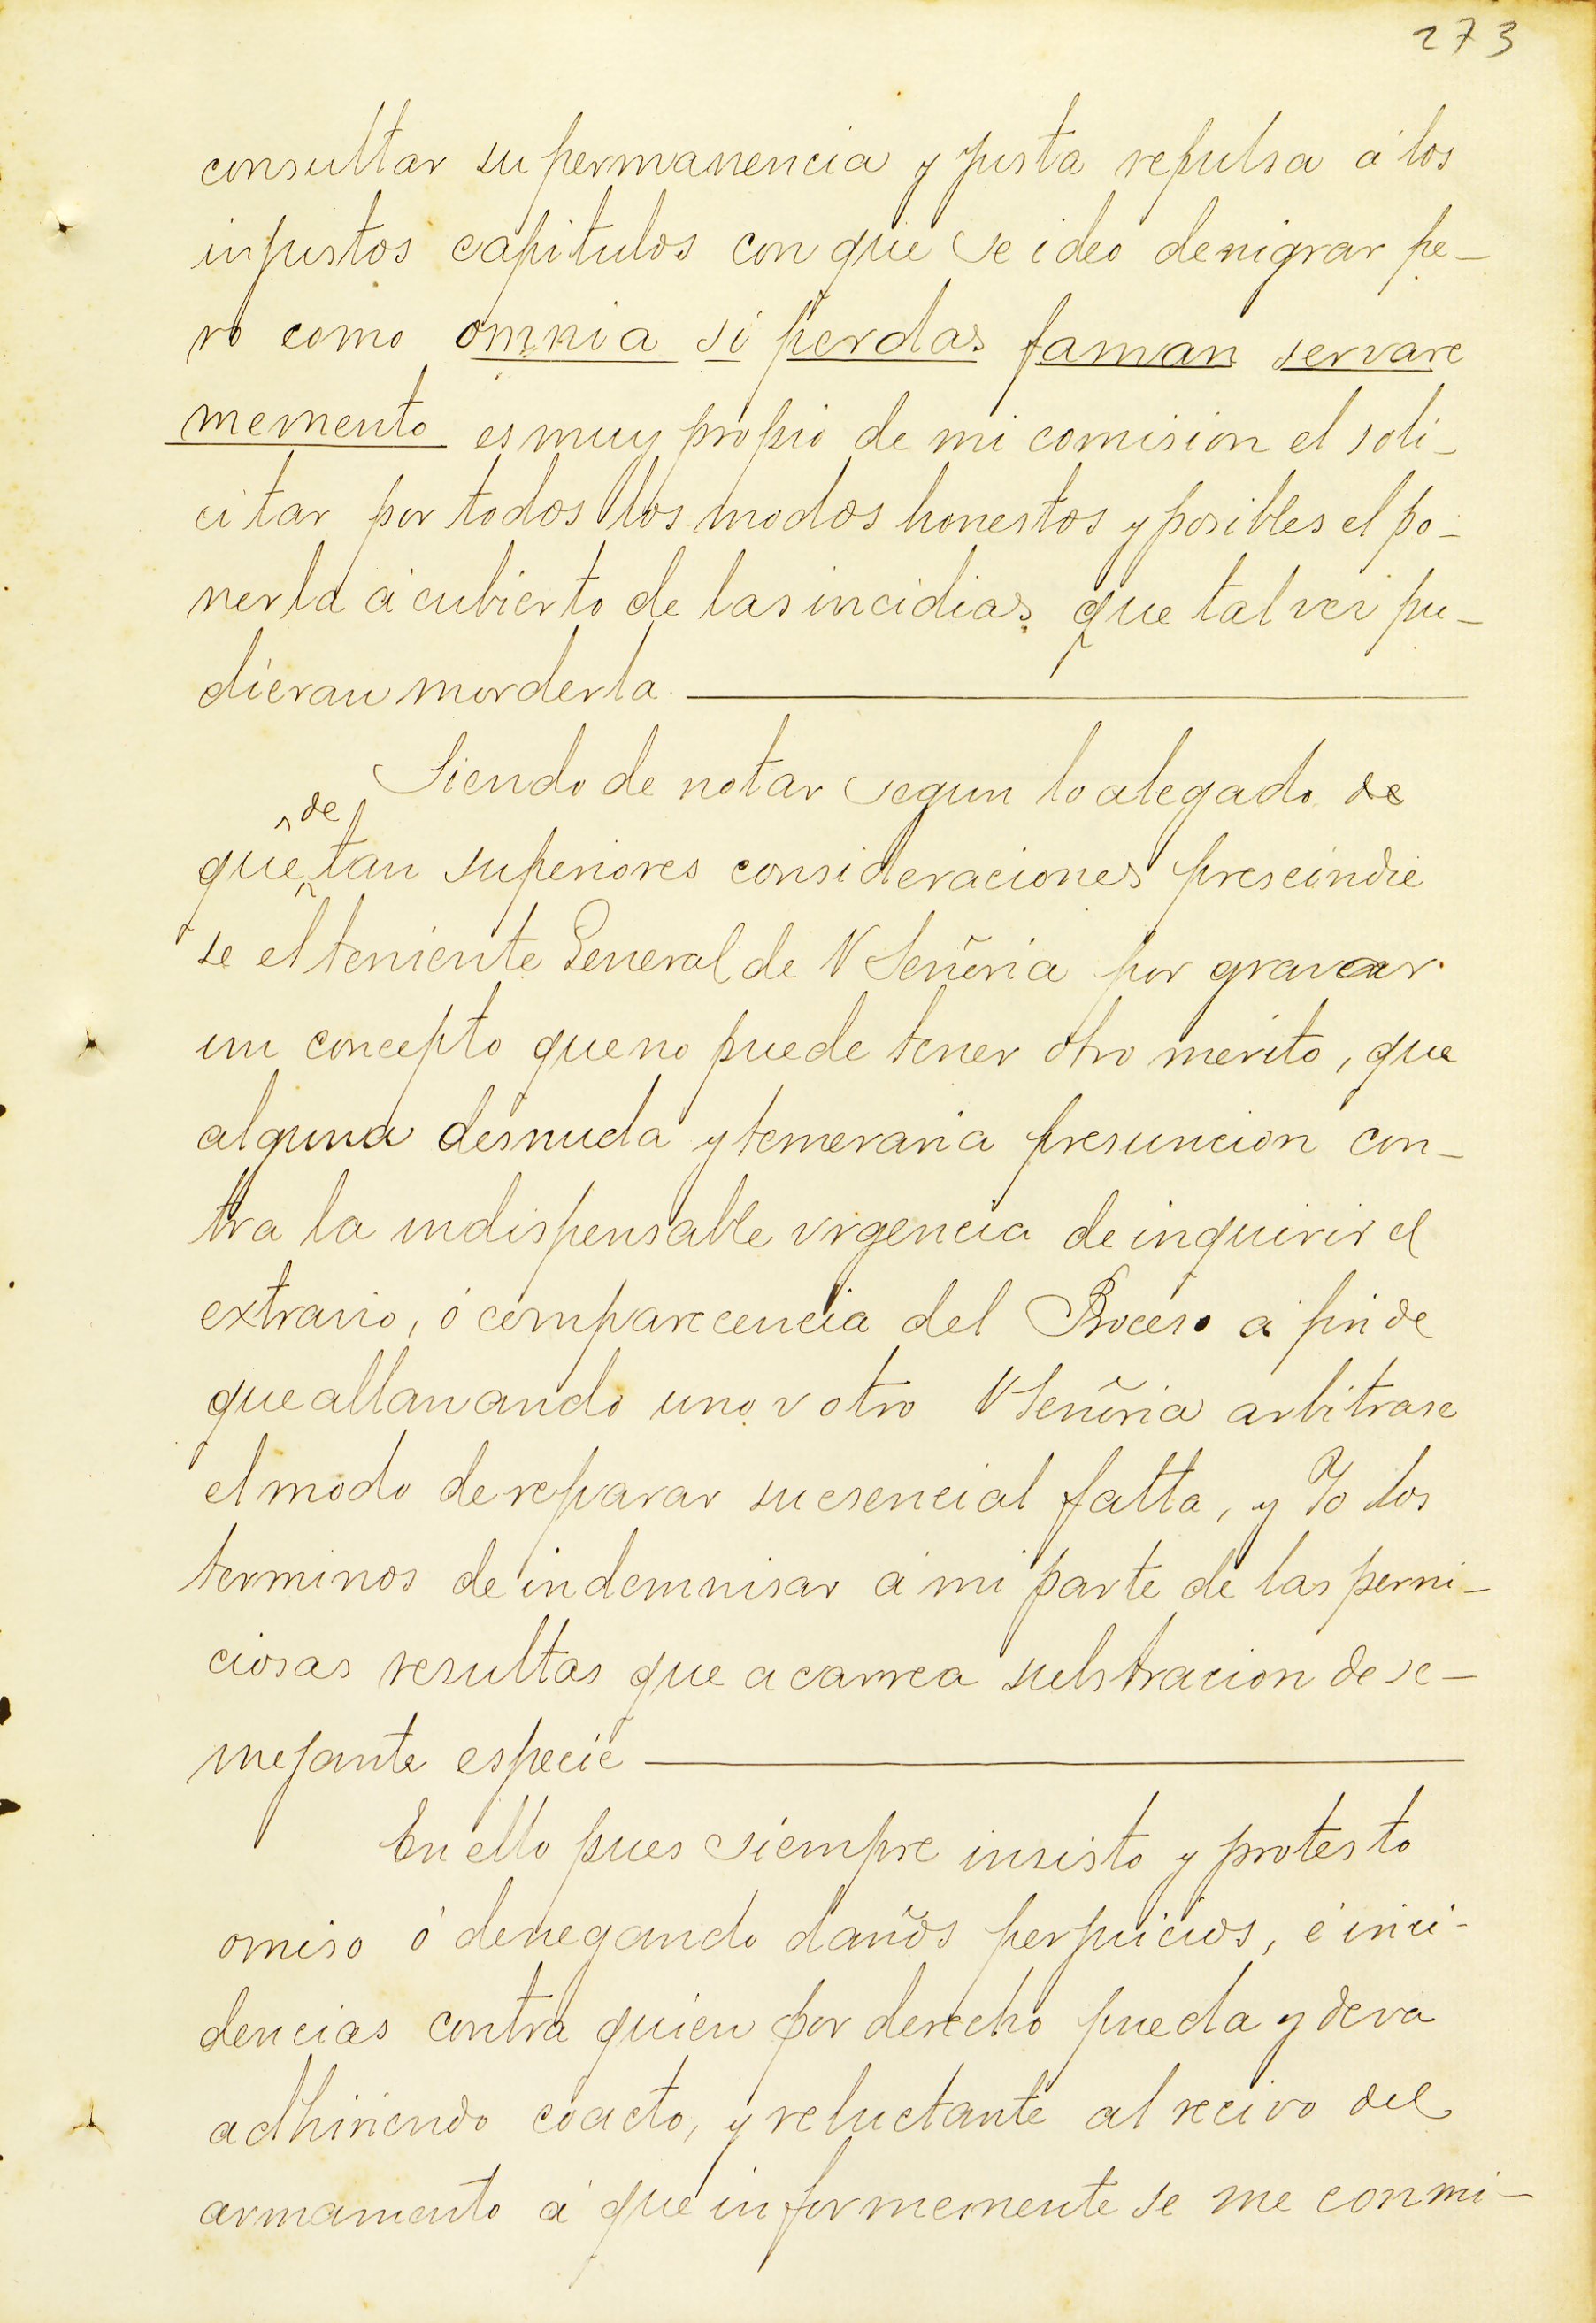 273
consultar su permanencia y justa repulsa á los
injustos capitulos con que se ideo denigrar pe-
ro como omnia si perdas faman servare
memento es muy propio de mi comision el soli-
citar por todos los modos honestos y posibles el po-
nerla á cubierto de las incidias que tal vez pu-
dieran morderla
Siendo de notar segun lo alegado de
que de tan superiores consideraciones prescindie
se el teniente General de V Señoria por gravar
un concepto que no puede tener otro merito, que
alguna desnuda y temeraria presuncion con-
tra la indispensable vrgencia de inquirir el
extravio, ó comparecencia del Proceso a fin de
que allanando uno v otro V Señoria arbitrase
el modo de reparar su esencial falta, y Yo los
terminos de indemnisar á mi parte de las perni-
ciosas resultas que acarrea substracion de se-
mejante especie
En ello pues siempre insisto y protesto
omiso ó denegando daños perjuicios, é inci-
dencias contra quien por derecho pueda y deva
adhiriendo coacto, y reluctante al recivo del
armamento á que informemente se me conmi-